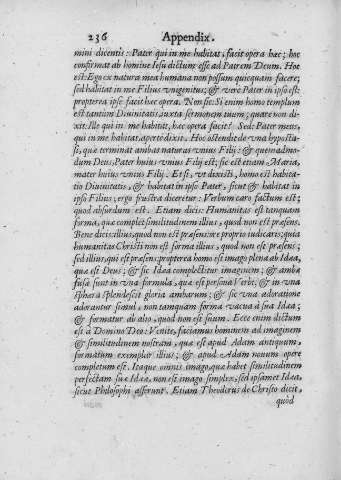 236 Appendix.
mini dicentis: Pater qui in me habitat, facit opera hæc; hoc
confirmat ab homine Iesu dictum esse ad Patrem Deum. Hoc
est: Ego ex natura mea humana non possum quicquam facere;
sed habitat in me Filius vnigenitus; & vere Pater in ipso est:
propterea ipse facit hæc opera. Non sic: Si enim homo templum
est tantùm Diuinitatis iuxta sermonem tuum; quare non di-
xit. Ille qui in me habitat, hæc opera facit? Sed: Pater meus,
qui in me habitat. Aperto dixit. Hoc ostendit de vna hyposta-
si, quæ terminat ambas naturas vnius Filij: & quemadmo-
dum Deus Pater huius vnius Filij est; sic est etiam Maria,
mater huius vnius Filij. Et si, vt dixisti, homo est habita-
tio Diuinitatis, & habitat in ipso Pater, sicut & habitat in
ipso Filius, ergo frustra diceretur: Verbum caro factum est;
quod absurdum est. Etiam dicit: Humanitas est tanquam
forma, quæ complet similitudinem illius, quod non est præsens.
Bene dicis: illius, quod non est præsens: ore proprio iudicaris; quia
humanitas Christi non est forma illius, quod non est præsens;
sed illius, qui est præsens; propterea homo est imago plena ab Idæa,
quæ est Deus; & sic Idæa complectitur imaginem; & ambæ
fusæ sunt in vna formula, quæ est persona Verbi; & in vna
sphæra splendescit gloria ambarum; & sic vna adoratione
adorantur simul, non tamquam forma vacua à sua Idæa;
& formatur ab alio, quod non est suum. Ecce enim dictum
est à Domino Deo: Venite, faciamus hominem ad imaginem
& similitudinem nostram, quæ est apud Adam antiquum,
formatum exemplar illius; & apud Adam nouum opere
completum est. Itaque omnis imago, quæ habet similitudinem
perfectam suæ Idæa, non est imago simplex, sed ipsamet Idæa,
sicut Philosophi asserunt. Etiam Theodorus de Christo dicit,
quòd